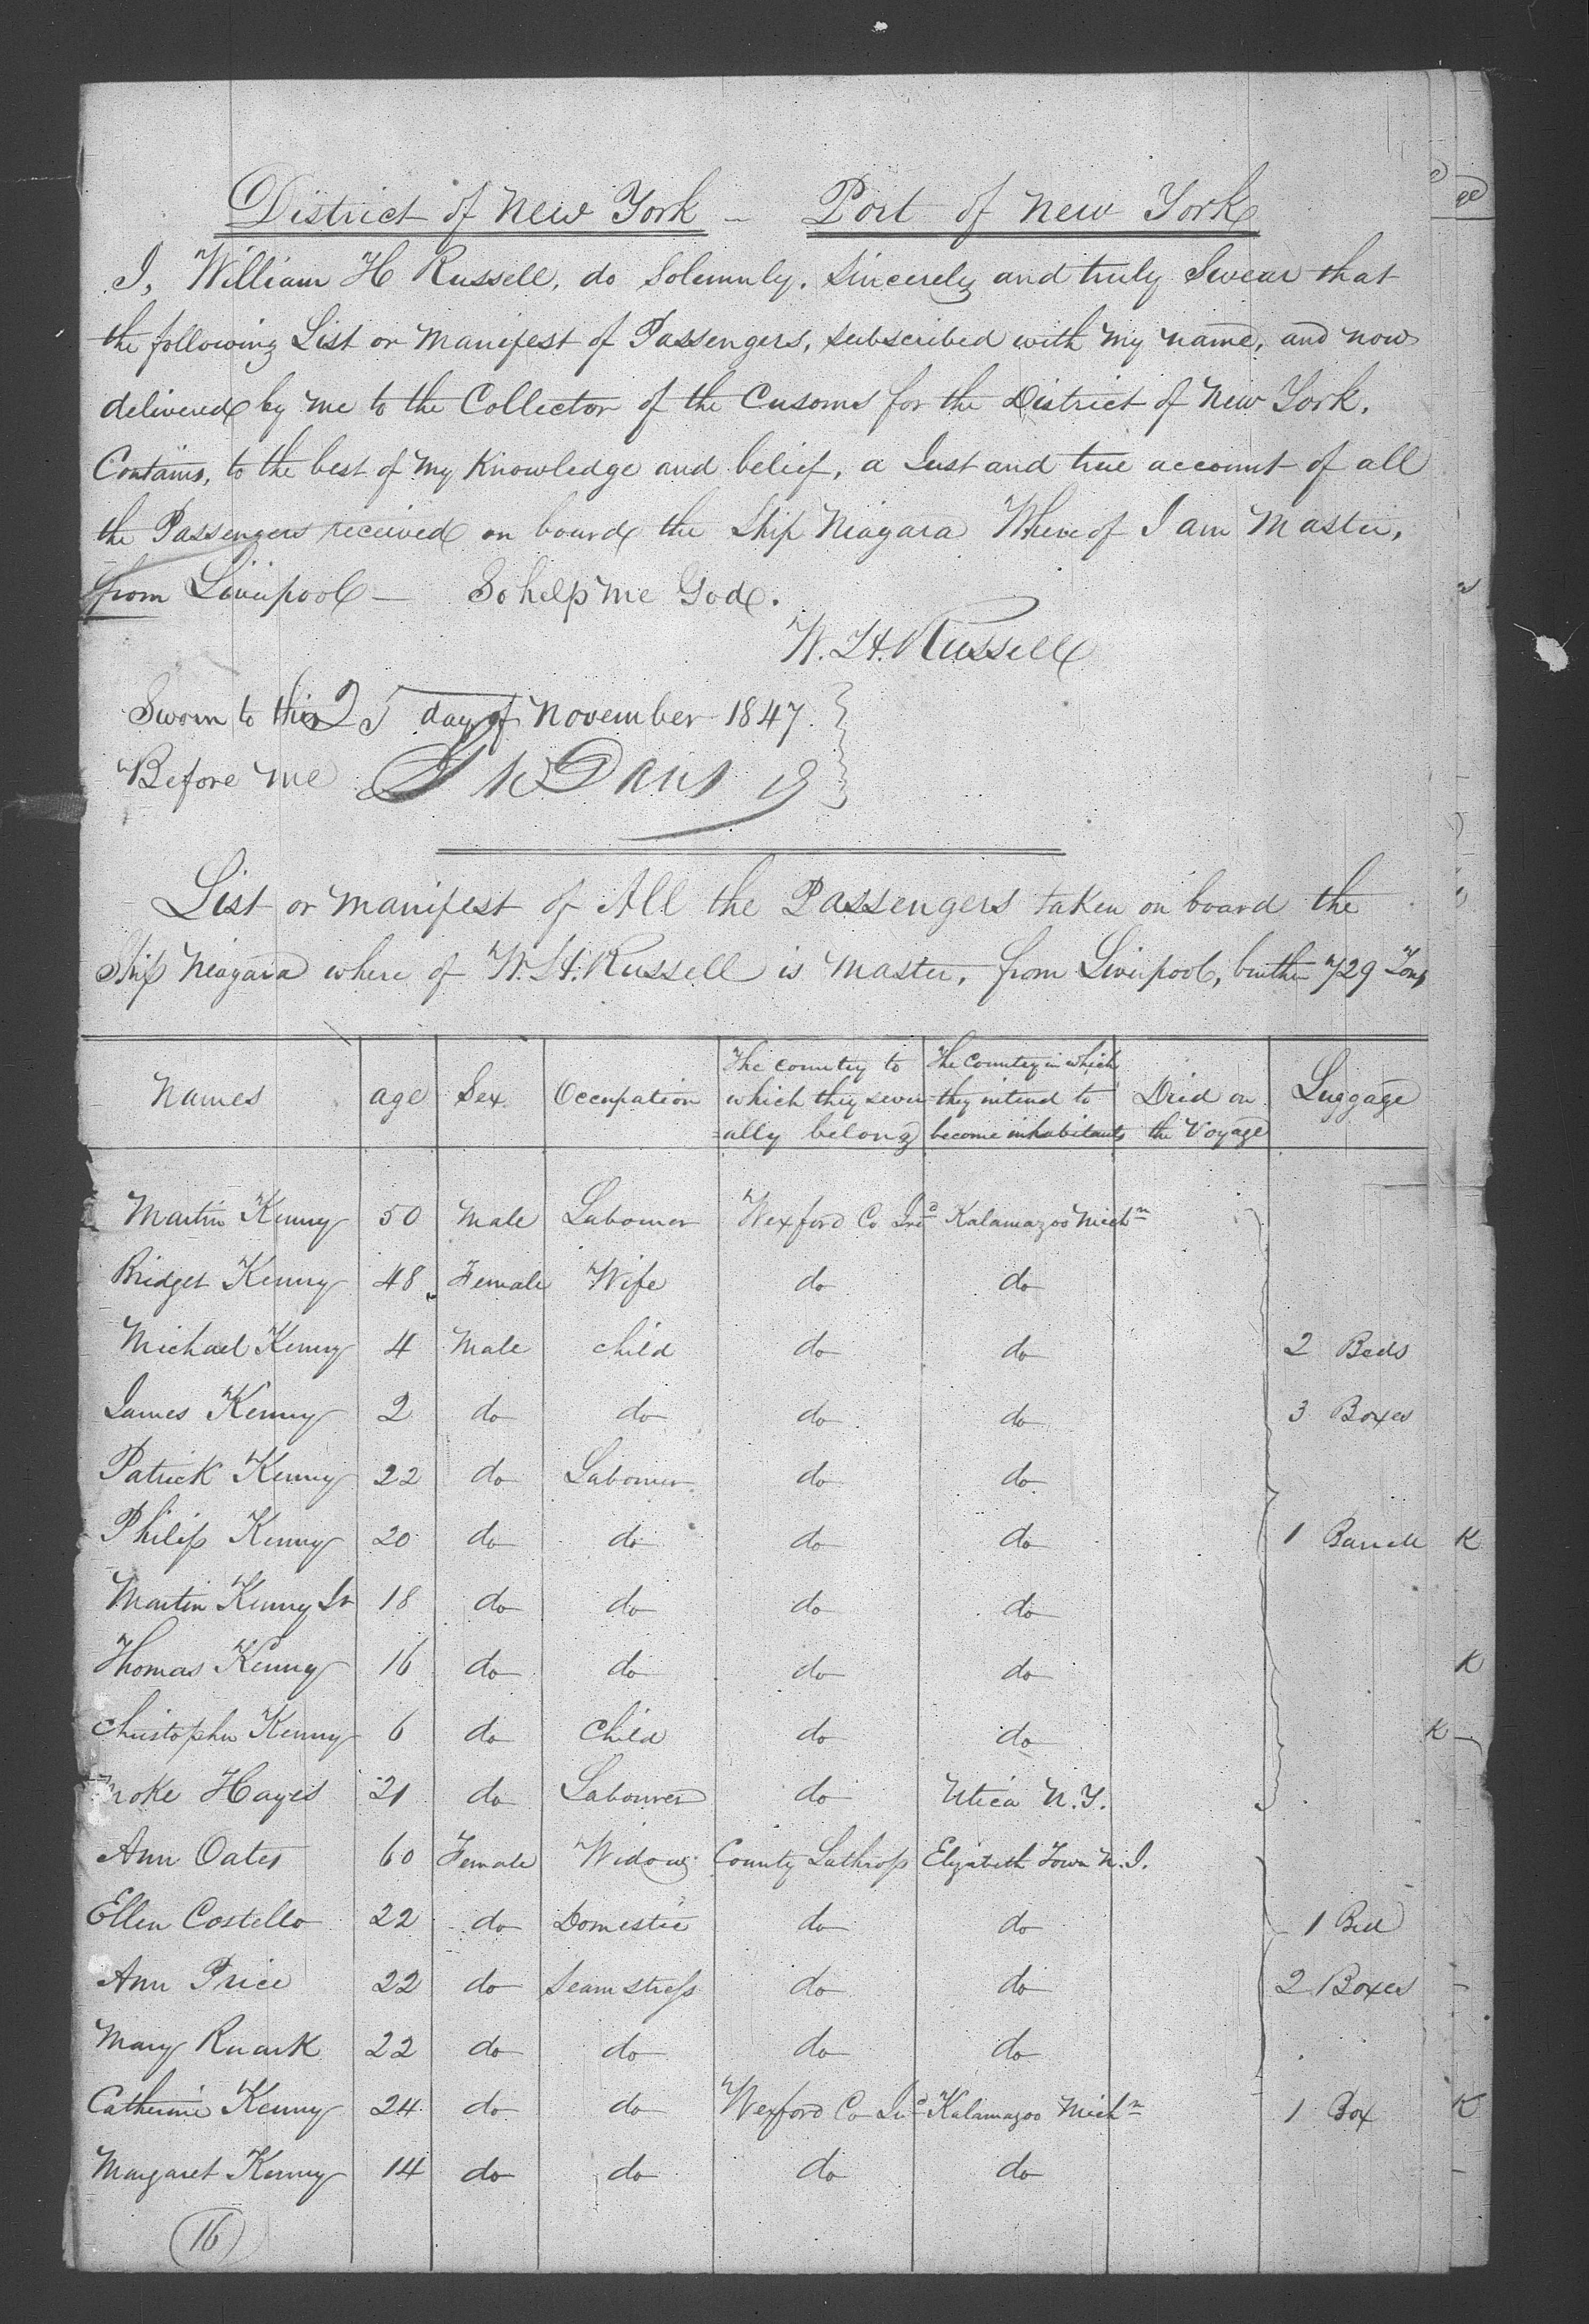 District of New York – Port of New York
I, William H Russell, do Solemnly, Sincerely and truly Swear that
the following List or Manifest of Passengers, subscribed with my name, and now
delivered by me to the Collector of the Cusoms for the District of New York,
Contains, to the best of my Knowledge and belief, a Just and true account of all
the Passengers received on board the Ship Niagara Where of I am Master,
from Liverpool — So help me God.
W. H. Russell
Sworn to this 25 day of November 1847
Before me
List or Manifest of All the Passengers taken on board the
Ship Niagara where of W. H. Russell is Master, from Liverpool, burthen 729 Tons
Names age Sex Occupation The country to which they sever=ally belong The Country in which they intend to become inhabitants Died on the Voyage Luggage
Martin Kenny 50 Male Labourer Wexford Co Ire^d Kalamazoo Mich^n
Bridget Kenny 48 Female Wife do do
Michael Kenny 4 Male child do do 2 Beds
James Kenny 2 do do do do 3 Boxes
Patrick Kenny 22 do Labourer do do
Philip Kenny 20 do do do do 1 Barrell K
Martin Kenny Jr 18 do do do do
Thomas Kenny 16 do do do do K
Christopher Kenny 6 do Child do do K
Hayes 21 do Labourer do Utica N.Y.
Ann Oates 60 Female Widow County Lathrop Elizabeth Town N.J.
Ellen Costello 22 do Domestic do do 1 Bed
Ann Price 22 do Seamstress do do 2 Boxes
Mary Ruark 22 do do do do
Catherine Kenny 24 do do Wexford Co Ire^d Kalamazoo Mich^n 1 Box K
Margaret Kenny 14 do do do do
16